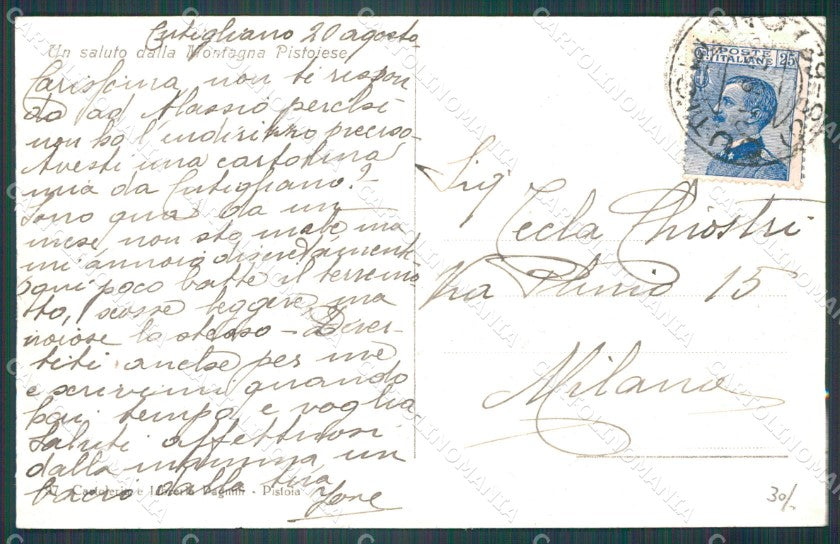 Cutigliano 20 agosto
Un saluto dalla Montagna Pistoiese
Carissima, non te rispon
do ad Alassio perchè
non ho l'indirizzo preciso.
Avesti una cartolina
mia da Cutigliano?
Sono qua da un
mese non sto male ma
mi annoio discretamente
ogni poco batte il terremo
to, scosse leggere ma
noiose lo stesso - Diver-
titi anche per me
e scrivimi quando
hai tempo e voglia
Saluti affettuosi
dalla mamma un
bacio dalla tua
Cartoleria e Libreria Pagnini - Pistoia
Yone
POSTE
ITALIANE
25
Sig.
Tecla Chiostri
Via Plinio 15
Milano
30/-
CARTOLINOMANIA